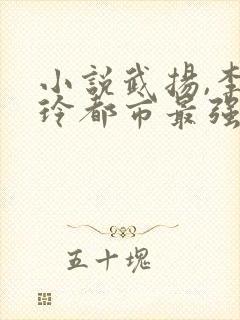 小說武揚,李
玲都市最强
五十塊